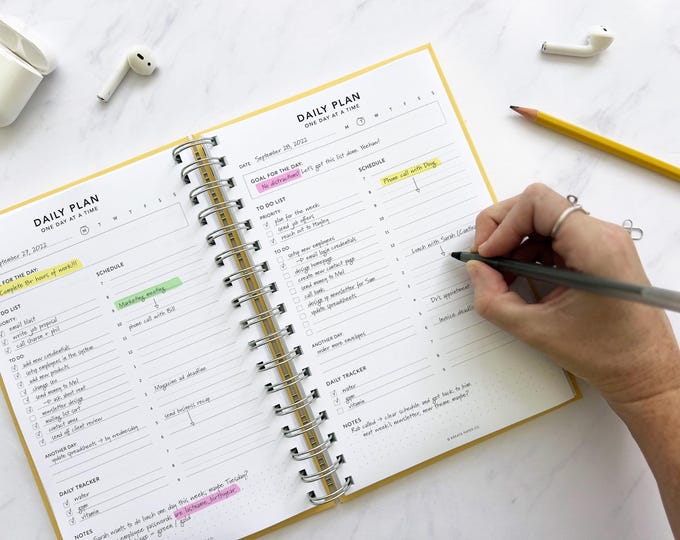 DAILY PLAN
ONE DAY AT A TIME
M T W T F S S
September 27, 2022
FOR THE DAY:
Complete 8hr hours of work!!!
TO DO LIST
PRIORITY
email blast
write job proposal
call Sharon + Phil
TO DO
add new credentials
setup employees in the system
add new products
change seo
send money to Mel
ask about rent
newsletter design
mailing list sort
contact anne
send off client review
ANOTHER DAY
update spreadsheets → by wednesday
DAILY TRACKER
water
gym
vitamin
NOTES
Sarah wants to do lunch one day this week, maybe Tuesday?
employee passwords are lastname_birthyear
= green / gold
SCHEDULE
7
8
Marketing meeting
phone call with Bill
Magazine ad deadline
send business recap
DAILY PLAN
ONE DAY AT A TIME
M T W T F S S
DATE September 28, 2022
GOAL FOR THE DAY:
No distractions! Let's get this list done. Yeehaw!
TO DO LIST
PRIORITY
plan for the week
send job offers
reach out to Marley
TO DO
setup new employees
email login credentials
design homepage
create new contact page
send money to Mel
call bank
design up newsletter for Sam
update spreadsheets
ANOTHER DAY
order more envelopes
DAILY TRACKER
water
gym
vitamin
NOTES
Rob called → clear schedule and get back to him
next week, newsletter, new theme maybe?
SCHEDULE
7
Phone call with Doug
8
9
10
11
12
Lunch with Sarah
1
Dr's appointment
Invoice deadline